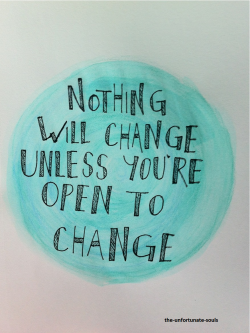 NOTHING
WILL CHANGE
UNLESS YOU'RE
OPEN TO
CHANGE
the-unfortunate-souls